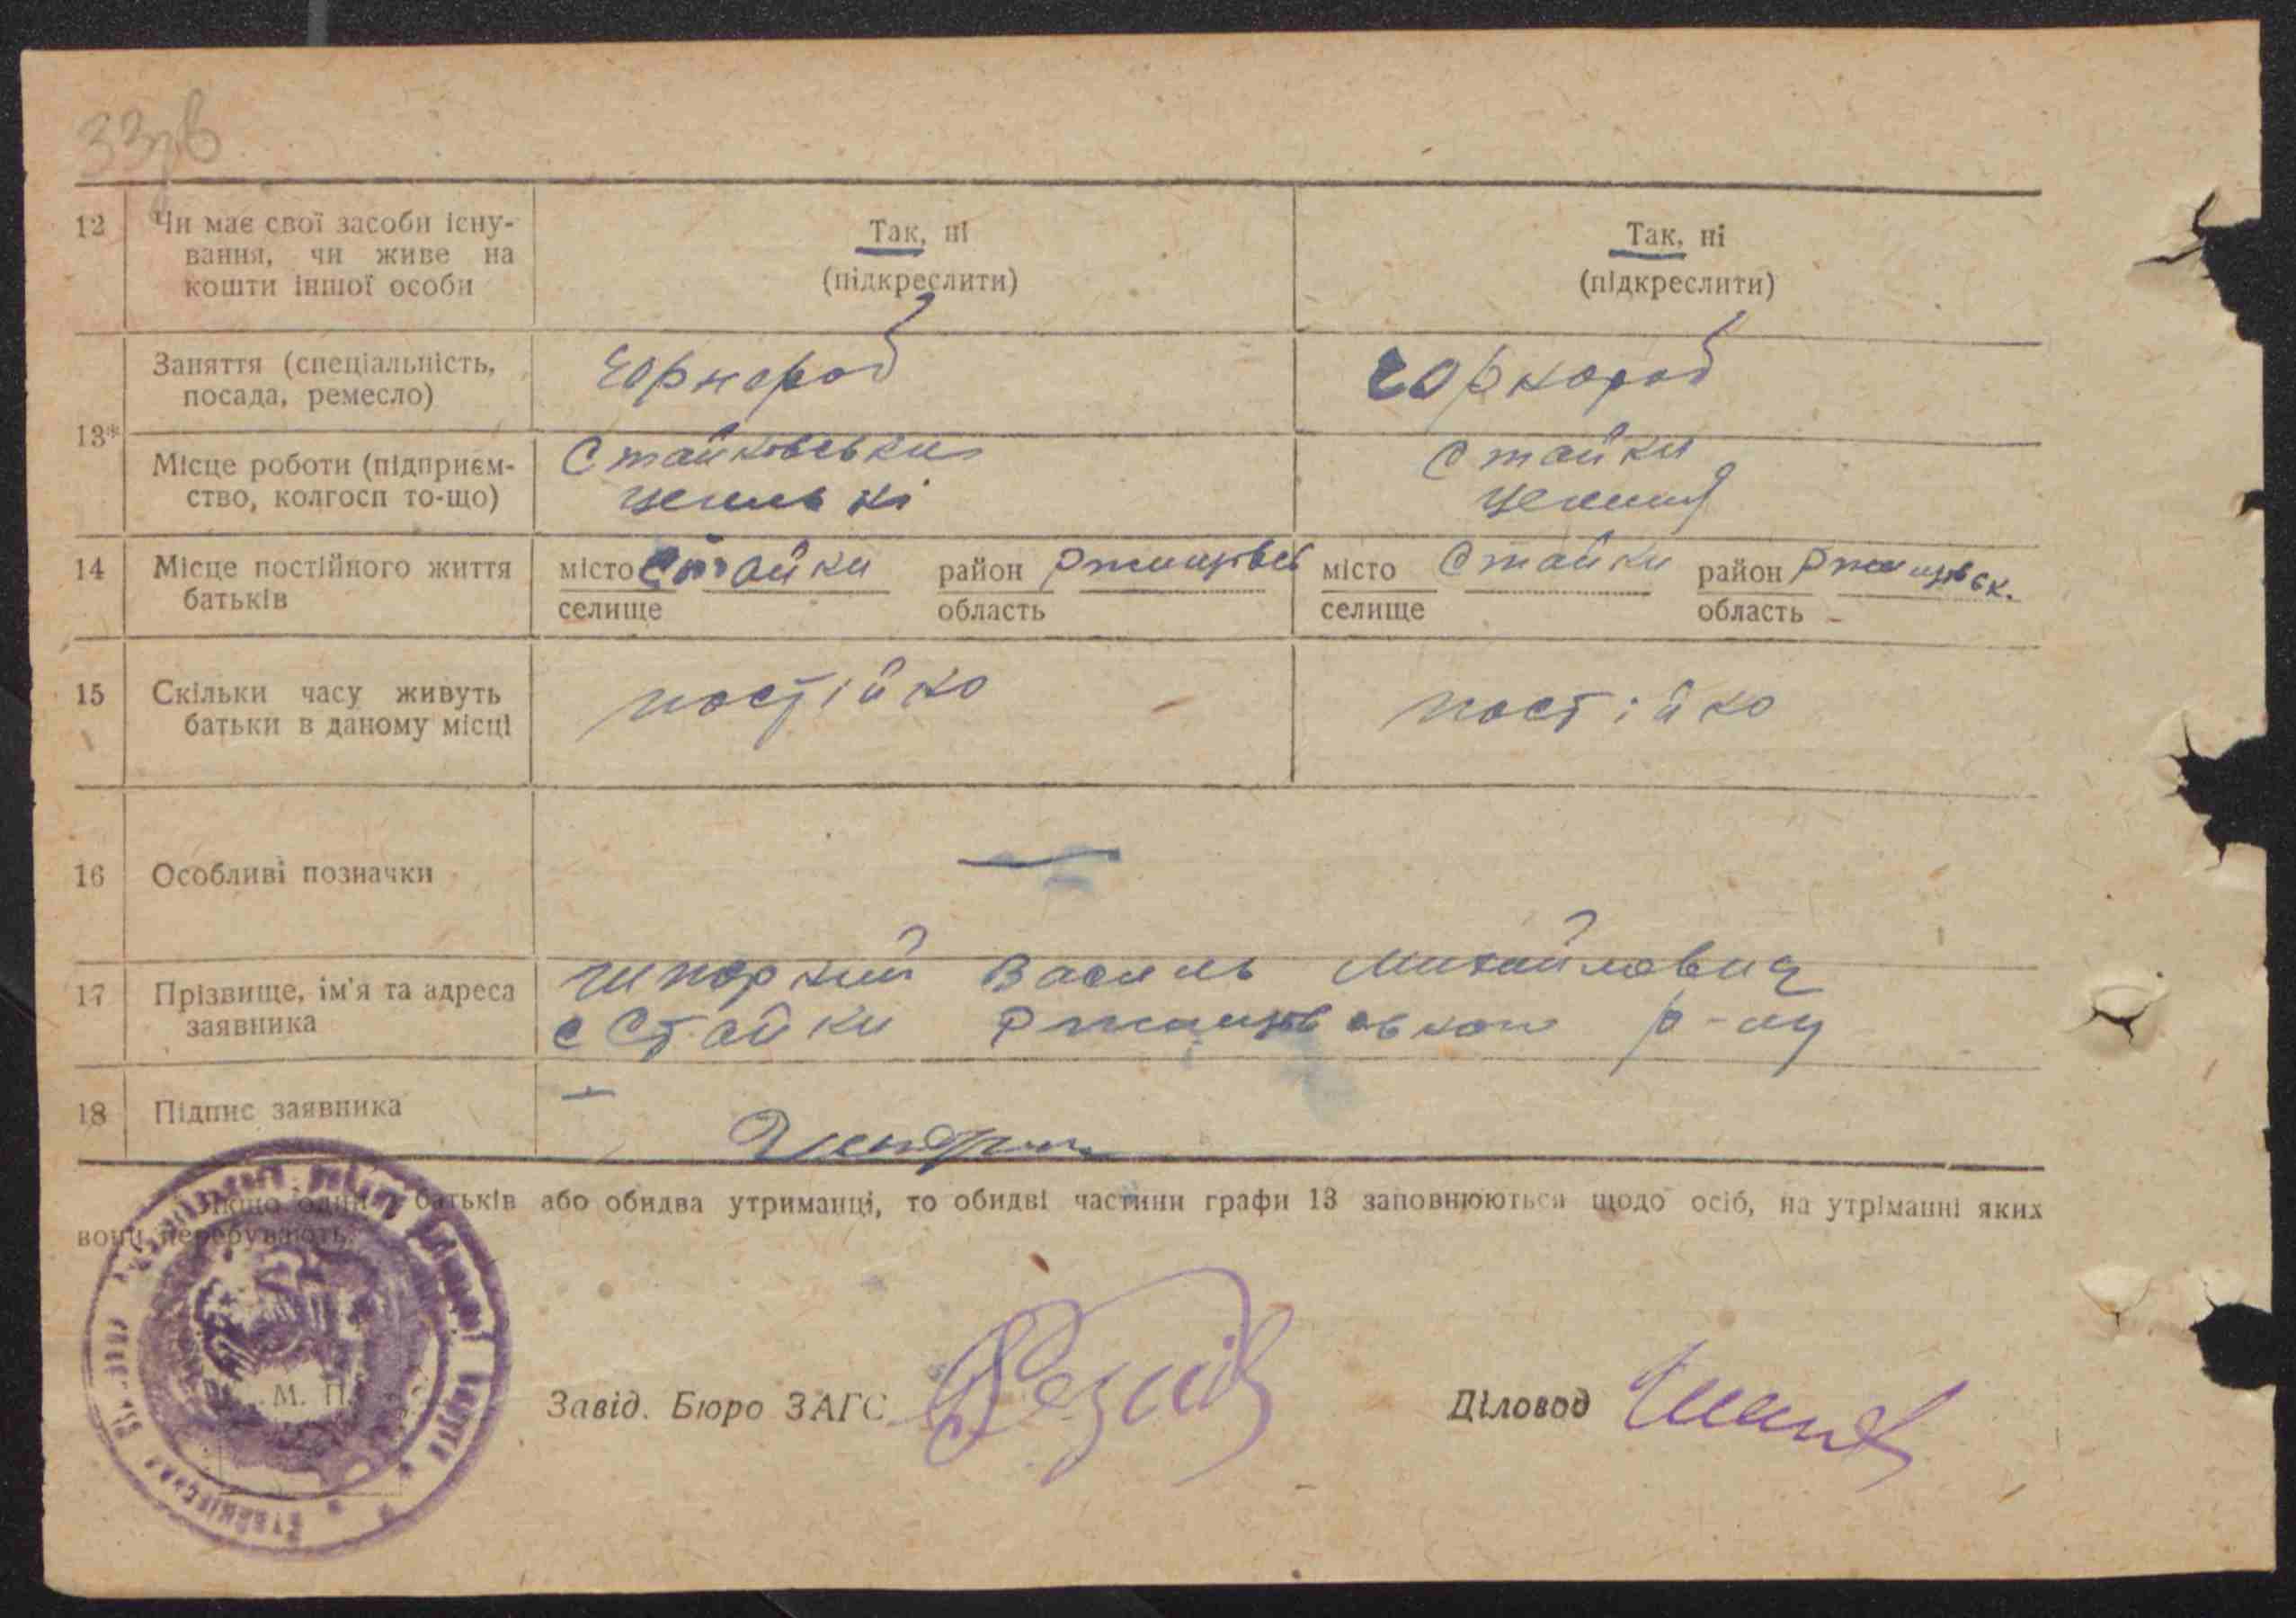 33зв
12 Чи має свої засоби існу- Так, ні Так, ні
вання, чи живе на (підкреслити) (підкреслити)
кошти іншої особи
Заняття (спеціальність, Чорнороб Чорнороб
посада, ремесло)
13*
Місце роботи (підприєм- Стайковськи Стайки
ство, колгосп то-що)
14 Місце постійного життя місто Стайки район місто Стайки район
батьків селище область селище область
15 Скільки часу живуть постійно постійно
батьки в даному місці
16 Особливі позначки —
17 Прізвище, ім'я та адреса Шпорний Василь Михайлович
заявника с Стайки р-ну
18 Підпис заявника
Якщо один з батьків або обидва утриманці, то обидві частини графи 13 заповнюються щодо осіб, на утріманні яких
вони перебувають.
М. П.
Завід. Бюро ЗАГС Діловод